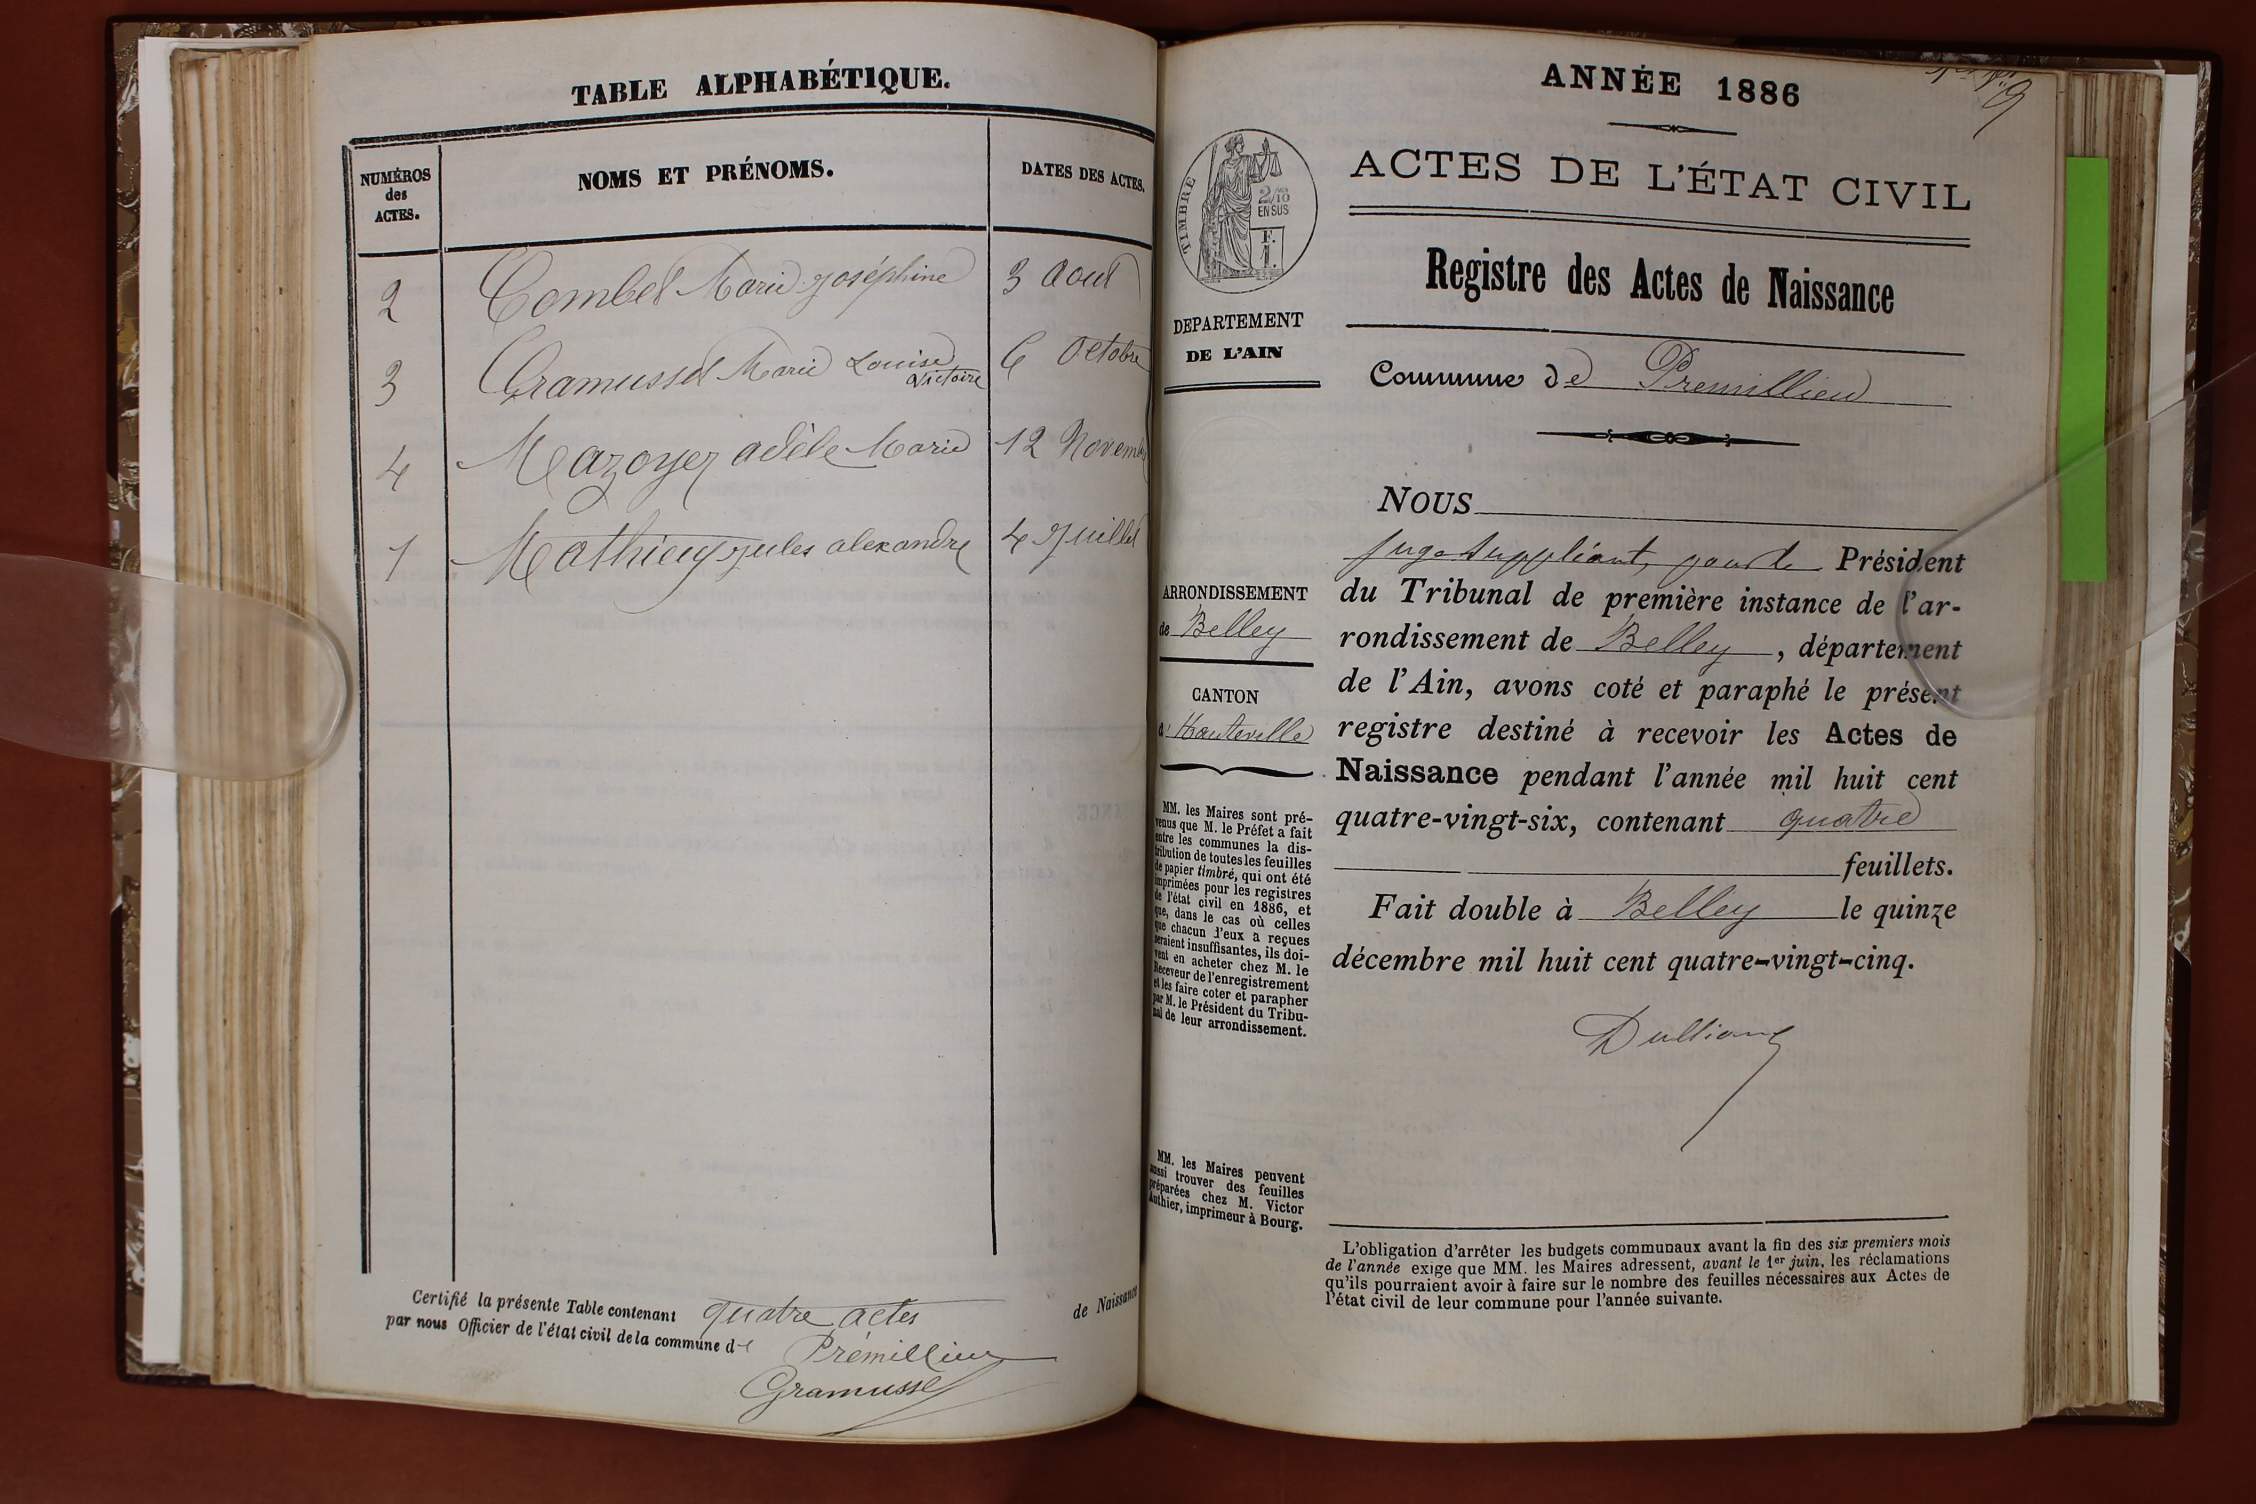 TABLE ALPHABÉTIQUE.
NUMÉROS
des
ACTES.
NOMS ET PRÉNOMS.
DATES DES ACTES.
2 Combet Marie Joséphine 3 Aout
3 Gramusset Marie Louise Victoire 6 Octobre
4 Mazoyer adèle Marie 12 Novembre
1 Mathieu Jules alexandre 4 Juillet
Certifié la présente Table contenant quatre actes de Naissance
par nous Officier de l'état civil de la commune de Prémillieu
Gramusset
ANNÉE 1886
ACTES DE L'ÉTAT CIVIL
TIMBRE
2/10
EN SUS
F.
1.
DEPARTEMENT
DE L'AIN
Registre des Actes de Naissance
Commune de Premillieu
ARRONDISSEMENT
de Belley
CANTON
d' Hauteville
MM. les Maires sont pré-
venus que M. le Préfet a fait
entre les communes la dis-
tribution de toutes les feuilles
de papier timbré, qui ont été
imprimées pour les registres
de l'état civil en 1886, et
que, dans le cas où celles
que chacun d'eux a reçues
seraient insuffisantes, ils doi-
vent en acheter chez M. le
Receveur de l'enregistrement
et les faire coter et parapher
par M. le Président du Tribu-
nal de leur arrondissement.
MM. les Maires peuvent
aussi trouver des feuilles
préparées chez M. Victor
Authier, imprimeur à Bourg.
NOUS
juge suppléant, pour le Président
du Tribunal de première instance de l'ar-
rondissement de Belley, département
de l'Ain, avons coté et paraphé le présent
registre destiné à recevoir les Actes de
Naissance pendant l'année mil huit cent
quatre-vingt-six, contenant quatre
feuillets.
Fait double à Belley le quinze
décembre mil huit cent quatre-vingt-cinq.
L'obligation d'arrêter les budgets communaux avant la fin des six premiers mois
de l'année exige que MM. les Maires adressent, avant le 1er juin, les réclamations
qu'ils pourraient avoir à faire sur le nombre des feuilles nécessaires aux Actes de
l'état civil de leur commune pour l'année suivante.